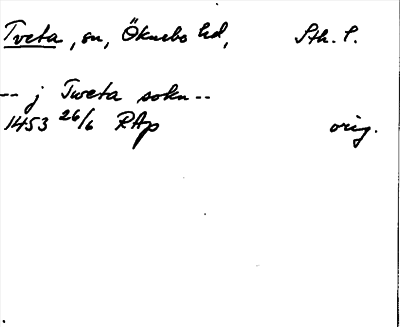 Tveta, sn, Öknebo hd, Sth. l.
-- j Tweta sokn --
1453 26/6 RAp orig.